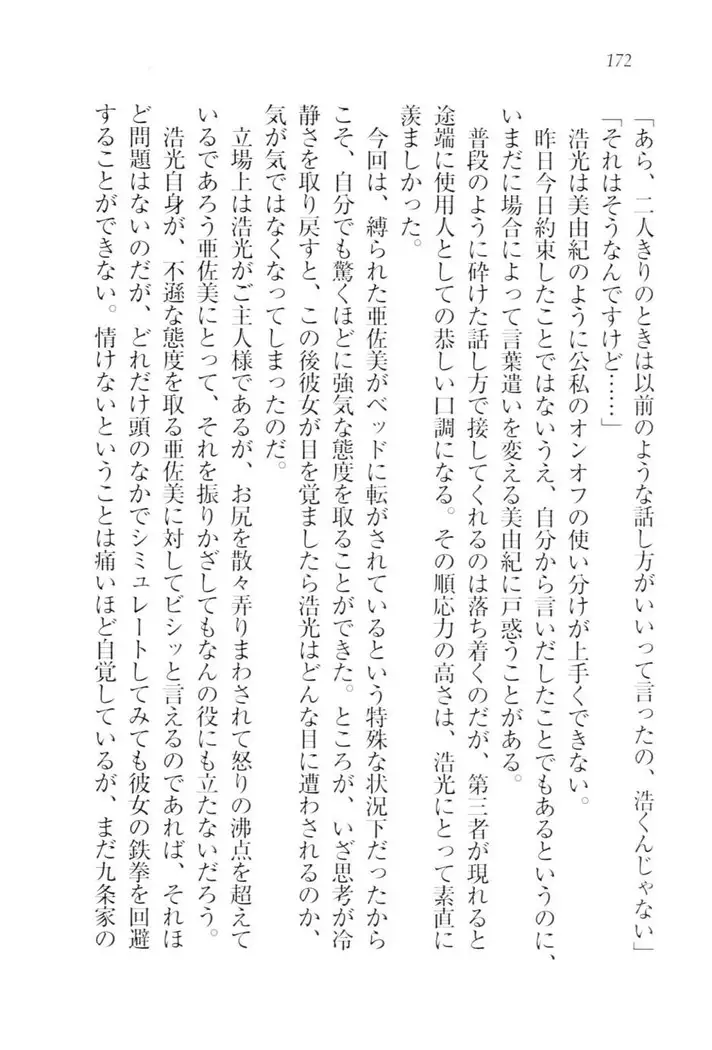 172
「あら、二人きりのときは以前のような話し方がいいって言ったの、浩くんじゃない」
「それはそうなんですけど……」
　浩光は美由紀のように公私のオンオフの使い分けが上手くできない。
　昨日今日約束したことではないうえ、自分から言いだしたことでもあるというのに、
いまだに場合によって言葉遣いを変える美由紀に戸惑うことがある。
　普段のように砕けた話し方で接してくれるのは落ち着くのだが、第三者が現れると
途端に使用人としての恭しい口調になる。その順応力の高さは、浩光にとって素直に
羨ましかった。
　今回は、縛られた亜佐美がベッドに転がされているという特殊な状況下だったから
こそ、自分でも驚くほどに強気な態度を取ることができた。ところが、いざ思考が冷
静さを取り戻すと、この後彼女が目を覚ましたら浩光はどんな目に遭わされるのか、
気が気ではなくなってしまったのだ。
　立場上は浩光がご主人様であるが、お尻を散々弄りまわされて怒りの沸点を超えて
いるであろう亜佐美にとって、それを振りかざしてもなんの役にも立たないだろう。
　浩光自身が、不遜な態度を取る亜佐美に対してビシッと言えるのであれば、それほ
ど問題はないのだが、どれだけ頭のなかでシミュレートしてみても彼女の鉄拳を回避
することができない。情けないということは痛いほど自覚しているが、まだ九条家の